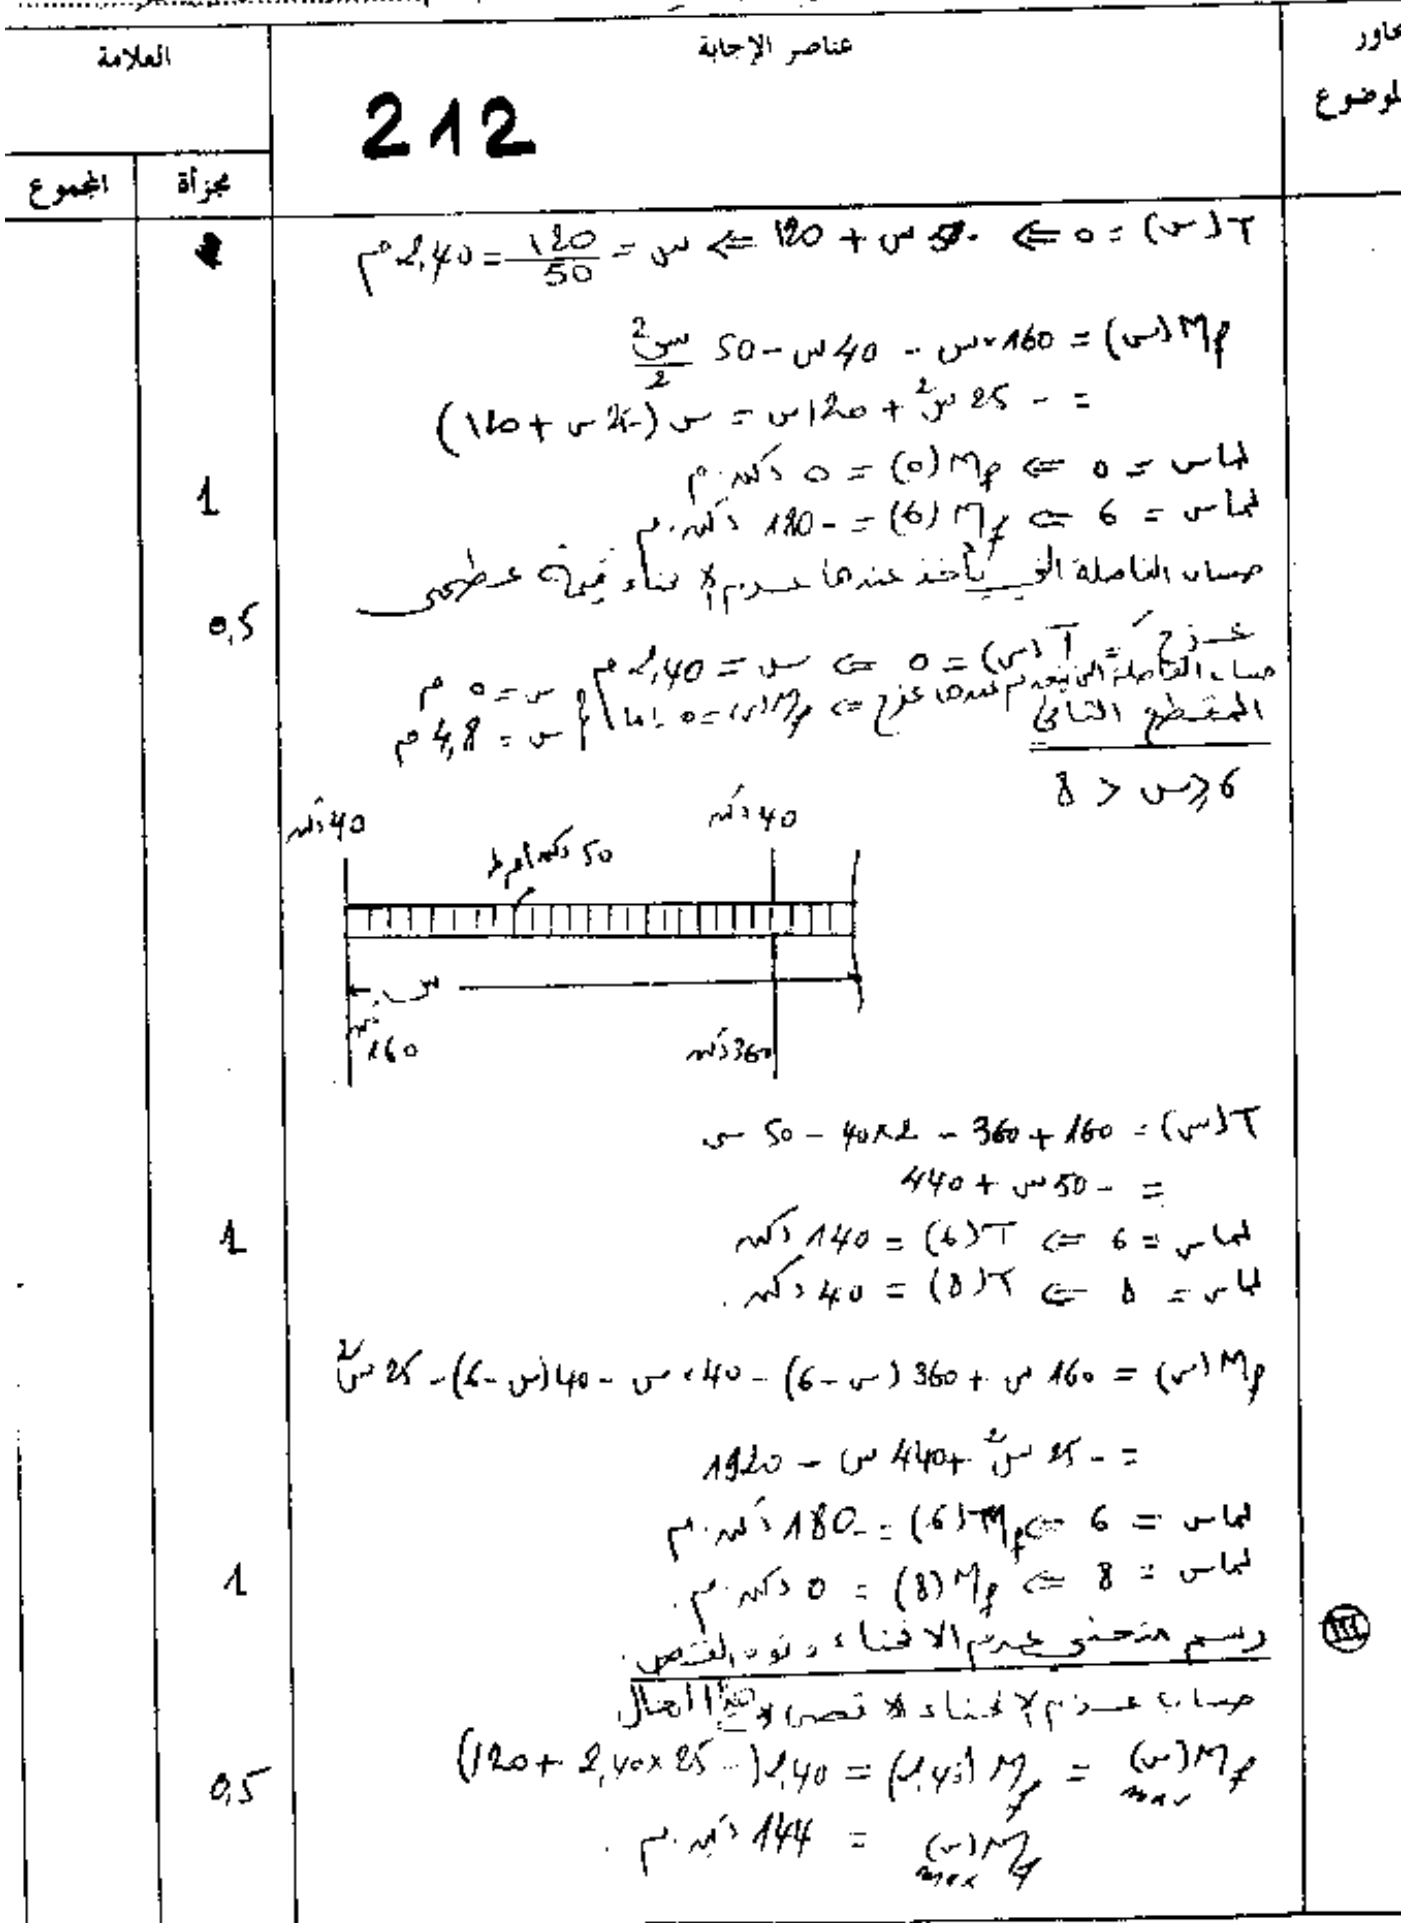 محاور الموضوع
عناصر الإجابة
العلامة
مجزأة
المجموع
212
T(س) = 0 ⇐ -50 س + 120 ⇐ س = 120/50 = 2,40 م
Mf(س) = 160×س - 40 س - 50 س²/2
= - 25 س² + 120 س = س (-25 س + 120)
لما س = 0 ⇐ Mf(0) = 0 دكن.م
1
لما س = 6 ⇐ Mf(6) = -180 دكن.م
حساب الفاصلة التي يأخذ عندها عزم الانحناء قيمة عظمى
0,5
T(س) = 0 ⇐ س = 2,40 م
حساب الفاصلة التي ينعدم عندها ⇐ Mf(س) = 0 إما س = 0 م
س = 4,8 م
المقطع الثاني
6 ≤ س < 8
40 دكن
40 دكن
50 دكن/م.ط
س
160 دكن
360 دكن
T(س) = 160 + 360 - 2×40 - 50 س
= - 50 س + 440
1
لما س = 6 ⇐ T(6) = 140 دكن
لما س = 8 ⇐ T(8) = 40 دكن.
Mf(س) = 160 س + 360 (س-6) - 40×س - 40(س-6) - 25 س²
= - 25 س² + 440 س - 1920
لما س = 6 ⇐ Mf(6) = -180 دكن.م
1
لما س = 8 ⇐ Mf(8) = 0 دكن.م.
III
رسم منحنى عزم الانحناء و القص.
حساب عزم الانحناء الأقصى في هذا المجال
0,5
Mf max(س) = Mf(2,40) = 2,40(- 25×2,40 + 120)
Mf max(س) = 144 دكن.م.